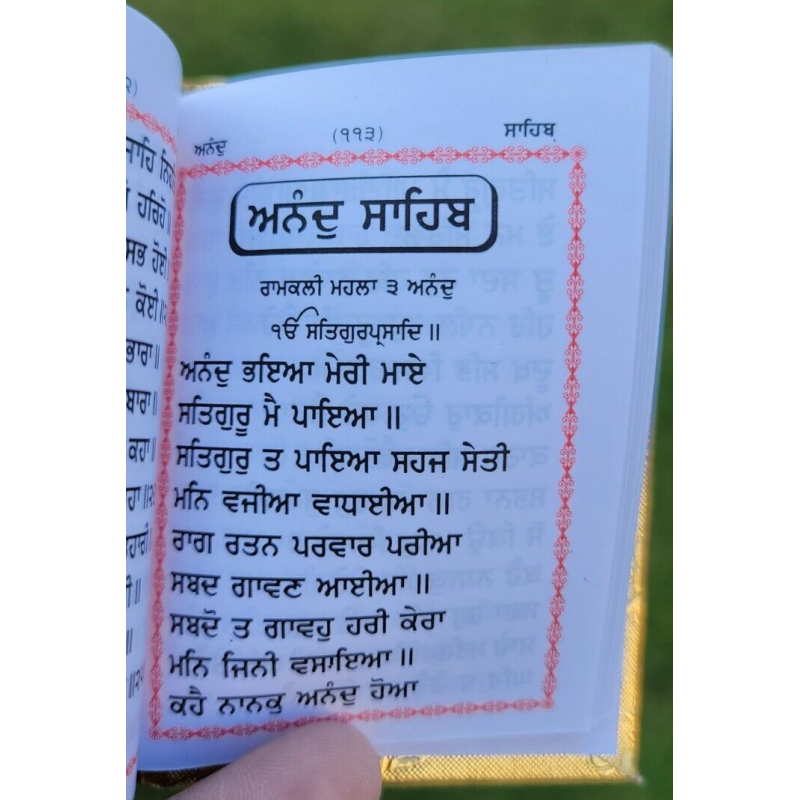 ੨)
ਹਰਿਹੋ॥
ਸਭ ਹੋਈ
ਕੋਈ॥
ਭਾਰਾ॥
ਬਾਰਾ॥
ਕਹਾ॥
ਅਨੰਦੁ (੧੧੩) ਸਾਹਿਬ
ਅਨੰਦੁ ਸਾਹਿਬ
ਰਾਮਕਲੀ ਮਹਲਾ ੩ ਅਨੰਦੁ
ੴ ਸਤਿਗੁਰਪ੍ਰਸਾਦਿ॥
ਅਨੰਦੁ ਭਇਆ ਮੇਰੀ ਮਾਏ
ਸਤਿਗੁਰੂ ਮੈ ਪਾਇਆ॥
ਸਤਿਗੁਰੁ ਤ ਪਾਇਆ ਸਹਜ ਸੇਤੀ
ਮਨਿ ਵਜੀਆ ਵਾਧਾਈਆ॥
ਰਾਗ ਰਤਨ ਪਰਵਾਰ ਪਰੀਆ
ਸਬਦ ਗਾਵਣ ਆਈਆ॥
ਸਬਦੋ ਤ ਗਾਵਹੁ ਹਰੀ ਕੇਰਾ
ਮਨਿ ਜਿਨੀ ਵਸਾਇਆ॥
ਕਹੈ ਨਾਨਕੁ ਅਨੰਦੁ ਹੋਆ